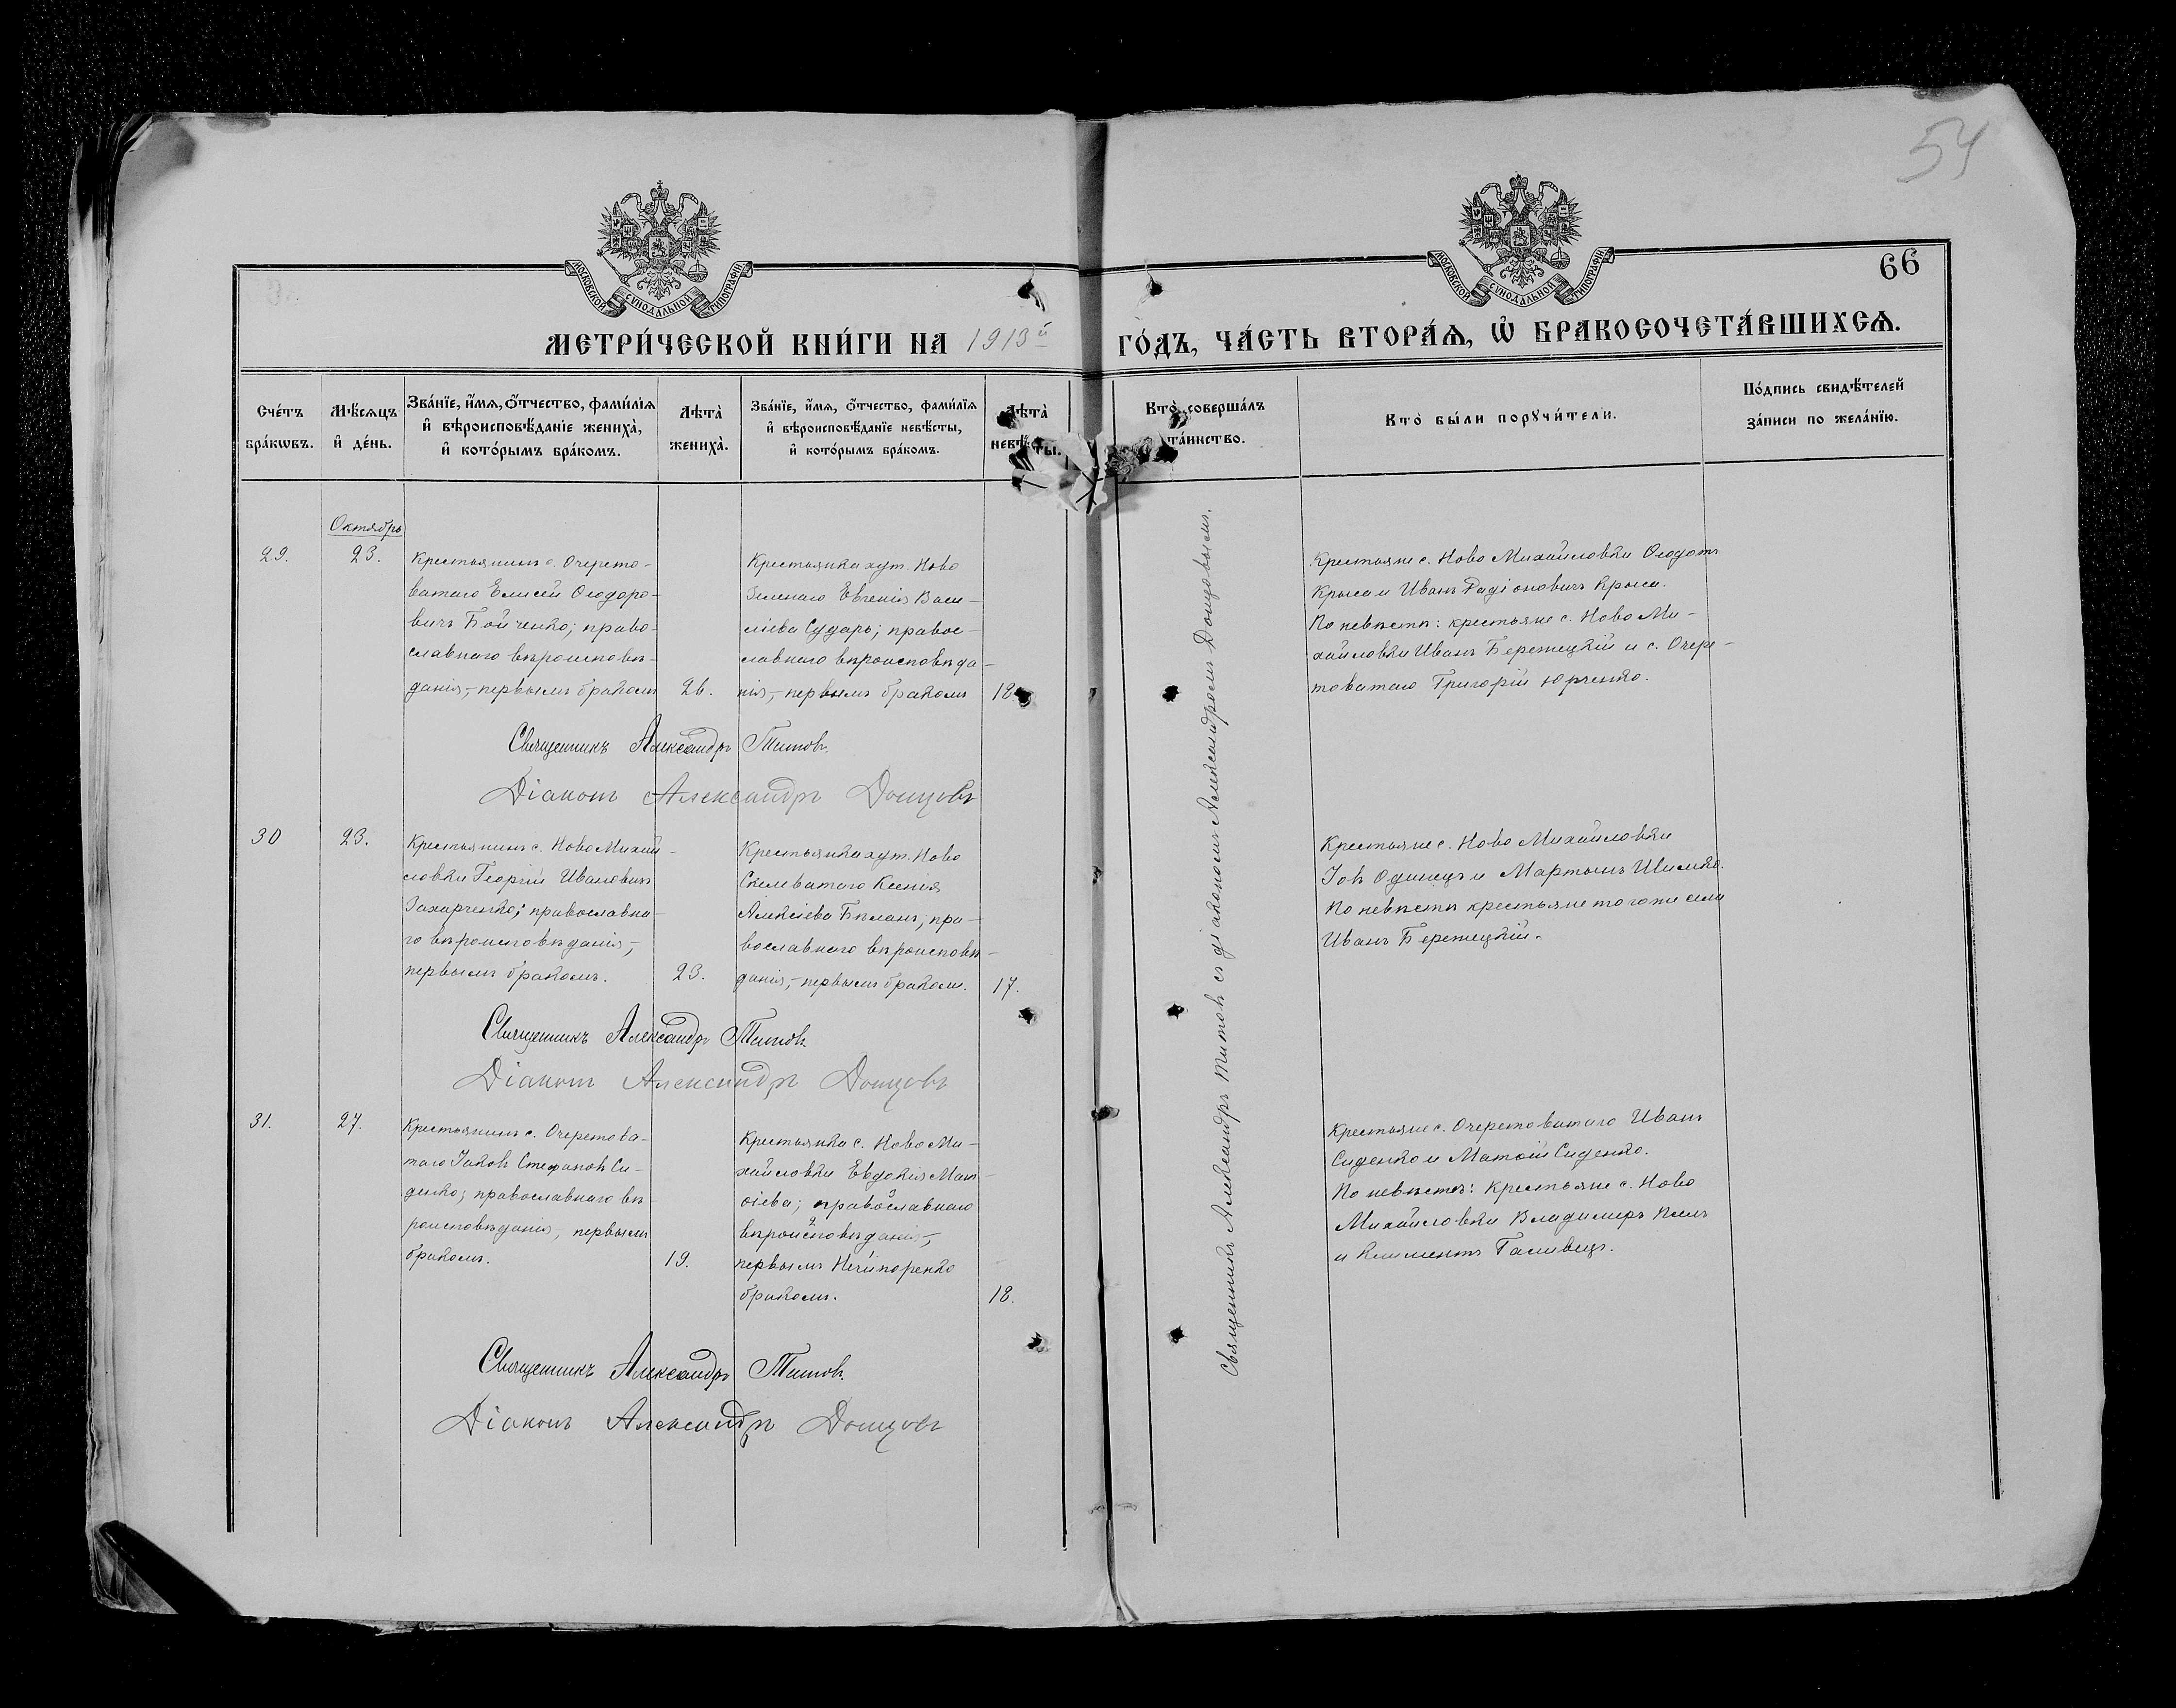 54
66
МОСКОВСКОЙ СѴНОДАЛЬНОЙ ТИПОГРАФІИ.
МОСКОВСКОЙ СѴНОДАЛЬНОЙ ТИПОГРАФІИ.
МЕТРИ́ЧЕСКОЙ КНИ́ГИ НА 1913й ГО́ДЪ, ЧА́СТЬ ВТОРА́Ѧ, Ѡ҆ БРАКОСОЧЕТА́ВШИХСѦ.
Сче́тъ бра́кѡвъ.
Мѣ́сѧцъ и҆ де́нь.
Зва́нїе, и҆́мѧ, ѻ҆́тчество, фами́лїѧ
и҆ вѣроисповѣ́данїе женихà,
и҆ кото́рымъ бра́комъ.
Лѣ́та̀ женихà.
Зва́нїе, и҆́мѧ, ѻ҆́тчество, фами́лїѧ
и҆ вѣроисповѣ́данїе невѣ́сты,
и҆ кото́рымъ бра́комъ.
Лѣ́та̀ невѣ́сты.
Кто̀ соверша́лъ та́инство.
Кто̀ бы́ли порꙋчи́тели.
По́дпись свидѣ́телей
за́писи по жела́нїю.
Октябрь
29.
23.
Крестьянинъ с. Очерето-
ватаго Елисей Ѳеодоро-
вичъ Бойченко; право-
славнаго вѣроисповѣ-
данія,- первымъ бракомъ
26.
Крестьянка хут. Ново
Зеленаго Евгенія Васи-
ліева Сударь; правос-
лавнаго вѣроисповѣда-
нія,- первымъ бракомъ
18
Крестьяне с. Ново Михайловки Ѳеодотъ
Крыса и Иванъ Радіоновичъ Крыса.
По невѣстѣ: крестьяне с. Ново Ми-
хайловки Иванъ Бережецкій и с. Очере-
товатаго Григорій Юрченко.
Священникъ Александръ Титовъ.
Діаконъ Александръ Донцовъ
30
23.
Крестьянинъ с. Ново Михай-
ловки Георгій Ивановичъ
Захарченко; православна-
го вѣроисповѣданія,-
первымъ бракомъ.
23.
Крестьянка хут. Ново
Скелеватого Ксенія
Алексіева Бѣланъ; пра-
вославнаго вѣроисповѣ-
данія,- первымъ бракомъ.
17.
Крестьяне с. Ново Михайловки
Іовъ Одинецъ и Мартынъ
По невѣстѣ крестьяне того же села
Иванъ Бережецкій.
Священникъ Александръ Титовъ.
Діаконъ Александръ Донцовъ
31.
27.
Крестьянинъ с. Очеретова-
таго Іаковъ Стефановъ Си-
денко; православнаго вѣ-
роисповѣданія, первымъ
бракомъ.
19.
Крестьянка с. Ново Ми-
хайловки Евдокія Мат-
ѳіева; православнаго
вѣроисповѣданія,-
первымъ Нечипоренко
бракомъ.
18.
Крестьяне с. Очеретоватаго Иванъ
Сиденко и Матѳій Сиденко.
По невѣстѣ: Крестьяне с. Ново
Михайловки Владимиръ
и Климентъ
Священникъ Александръ Титовъ.
Діаконъ Александръ Донцовъ
Священникъ Александръ Титовъ съ діакономъ Александромъ Донцовымъ.